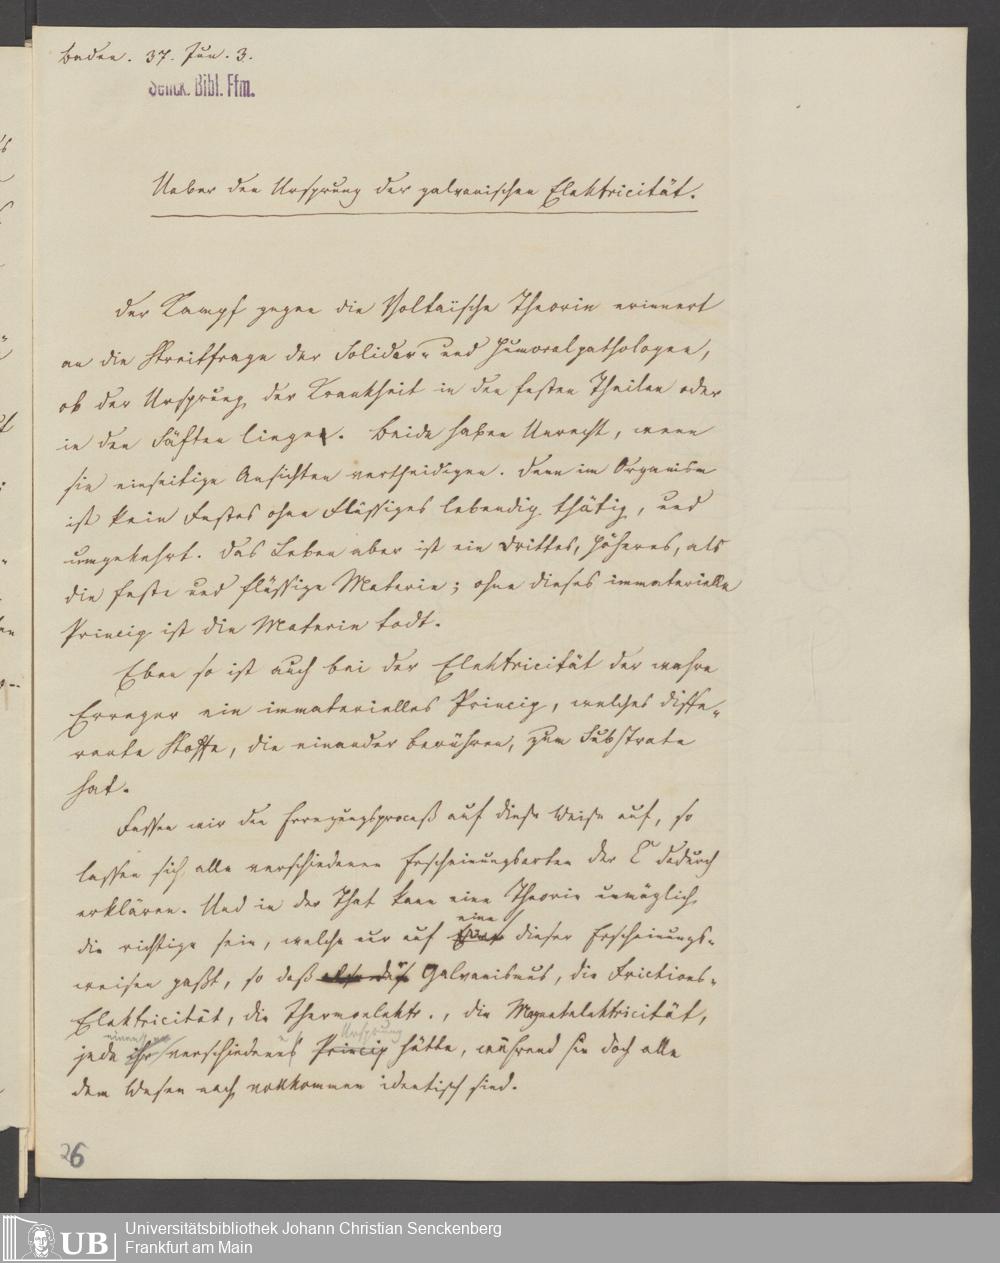 Baden. 37. Jun. 3.
Senck. Bibl. Ffm.
Ueber den Ursprung der galvanischen Elektricität.
Der Kampf gegen die Voltaïsche Theorie erinnert
an die Streitfrage der Solidar- und Humoralpathologen,
ob der Ursprung der Krankheit in den festen Theilen oder
in den Säften liege. Beide haben Unrecht, wenn
sie einseitige Ansichten vertheidigen. Denn im Organism
ist kein Festes ohne Flüssiges lebendig thätig, und
umgekehrt. Das Leben aber ist ein Drittes, Höheres, als
die feste und flüssige Materie; ohne dieses immaterielle
Princip ist die Materie todt.
Eben so ist auch bei der Elektricität der wahre
Erreger ein immaterielles Princip, welches diffe-
rente Stoffe, die einander berühren, zum Substrate
hat.
Fassen wir den Erregungsproceß auf diese Weise auf, so
lassen sich alle verschiedenen Erscheinungsarten der E dadurch
erklären. Und in der That kann eine Theorie unmöglich
die richtige sein, welche nur auf eine dieser Erscheinungs-
weisen paßt, so daß der Galvanismus, die Frictions-
Elektricität, die Thermoelektr., die Magnetelektricität,
jede einen verschiedenen Ursprung hätte, während sie doch alle
dem Wesen nach vollkommen identisch sind.
26
UB
Universitätsbibliothek Johann Christian Senckenberg
Frankfurt am Main